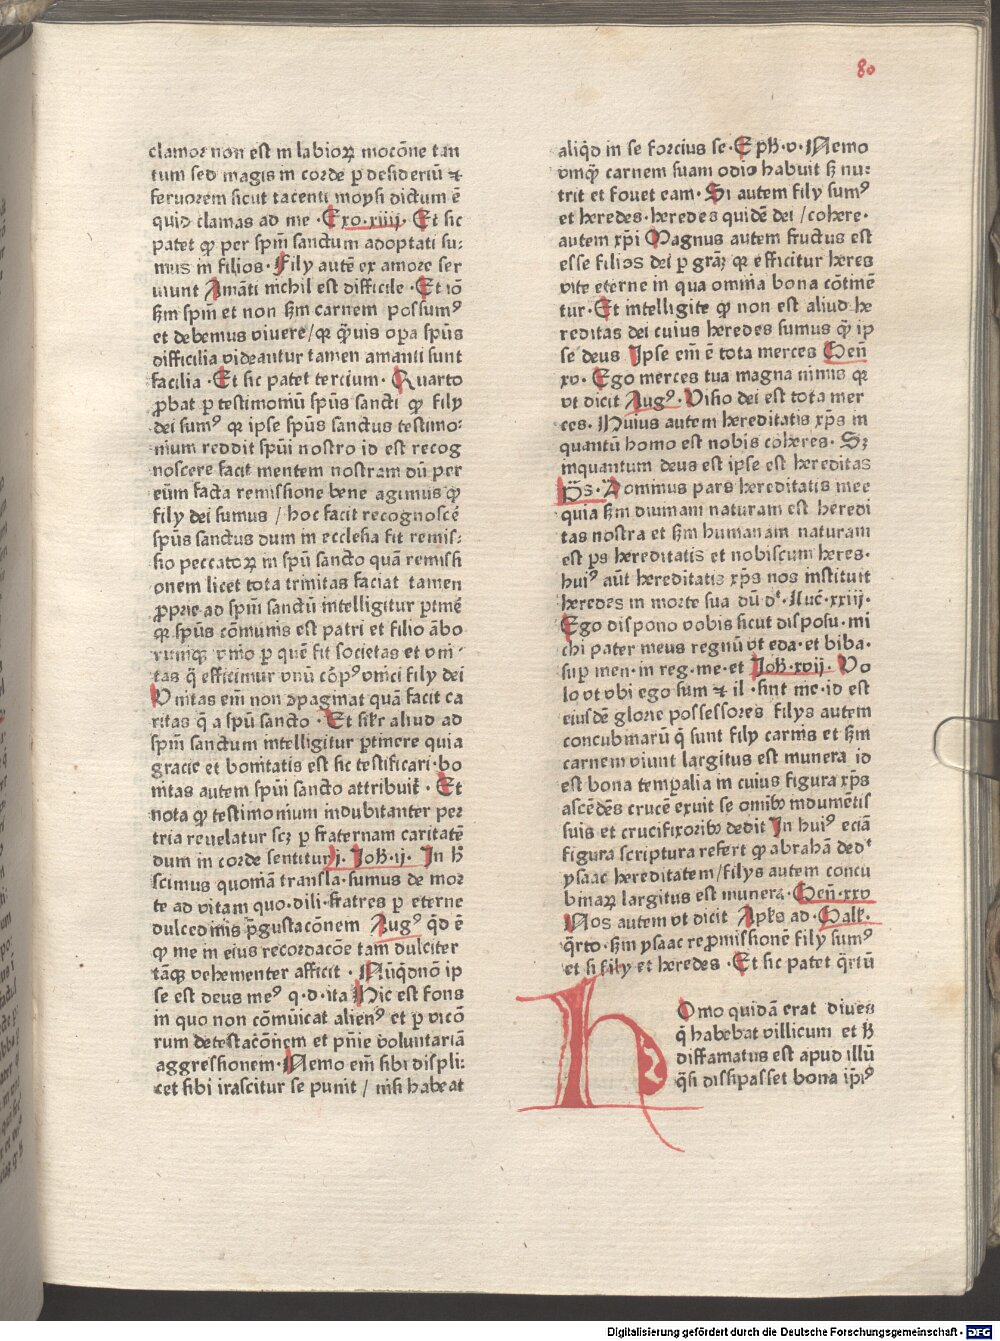 80
clamor non est in labiorꝝ mocōne tan
tum sed magis in corde ꝑ desideriū ⁊
feruorem sicut tacenti moysi dictum ē
quid clamas ad me · Exo · xiiij · Et sic
patet ꝙ per spm̄ sanctum adoptati su:
mus in filios · Fily autē ex amore ser
uiunt Amāti nichil est difficile · Et iō
ẜm spm̄ et non ẜm carnem possumꝰ
et debemus viuere / qꝛ q̄uis oꝑa spūs
difficilia videantur tamen amanti sunt
facilia · Et sic patet tercium · Quarto
ꝓbat ꝑ testimoniū spūs sancti ꝙ fily
dei sumꝰ qꝛ ipse spūs sanctus testimo:
nium reddit spūi nostro id est recog
noscere facit mentem nostram dū per
eūm facta remissione bene agimus ꝙ
fily dei sumus / hoc facit recognoscē
spūs sanctus dum in ecclesia fit remis:
sio peccatorꝝ in spū sancto quā remissi
onem licet tota trinitas faciat tamen
ꝓprie ad spm̄ sanctū intelligitur ꝑtinē
qꝛ spūs cōmunis est patri et filio ābo
rumqꝫ vnio ꝑ quē fit societas et vni
tas q̄ efficimur vnū cōpꝰ vnici fily dei
Vnitas em̄ non ꝯpagmat quā facit ca
ritas q̄ a spū sancto · Et silr aliud ad
spm̄ sanctum intelligitur ꝑtinere quia
gracie et bonitatis est sic testificari · bo
nitas autem spūi sancto attribuit̄ · Et
nota ꝙ testimonium indubitanter per
tria reuelatur scꝫ ꝑ fraternam caritatē
dum in corde sentitur j · Joh̄ · ij · In h̄
scimus quoniā transla · sumus de mor
te ad vitam quo · dili · fratres ꝑ eterne
dulcedinis p̄gustacōnem Augꝰ qd ē
ꝙ me in eius recordacōe tam dulciter
tāqꝫ vehementer afficit · Nūqdnō ip
se est deus meꝰ q · d · ita Hic est fons
in quo non cōmūicat alienꝰ et ꝑ vicō
rum detestacōnem et pn̄ie voluntariā
aggressionem · Nemo em̄ sibi displi:
cet sibi irascitur se punit / nisi habeat
aliqd in se forcius se · Eph̄ · v · Nemo
vmq̄ carnem suam odio habuit sꝫ nu:
trit et fouet eam · Si autem fily sumꝰ
et heredes · heredes quidē dei / cohere ·
autem xp̄i Magnus autem fructus est
esse filios dei ꝑ grāꝫ qꝛ efficitur heres
vite eterne in qua omnia bona cōtinē
tur · Et intelligite ꝙ non est aliud he
reditas dei cuius heredes sumus q̄ ip
se deus Ipse em̄ ē tota merces Gen̄
xv · Ego merces tua magna nimis qꝛ
vt dicit Augꝰ · Visio dei est tota mer
ces · Huius autem hereditatis xp̄s in
quantū homo est nobis coheres · Sꝫ
inquantum deus est ipse est hereditas
p̄s · Dominus pars hereditatis mee
quia ẜm diuinam naturam est heredi
tas nostra et ẜm humanam naturam
est ꝑs hereditatis et nobiscum heres ·
huiꝰ aūt hereditatis xp̄s nos instituit
heredes in morte sua dū dt · Luc̄ · xxiij ·
Ego dispono vobis sicut disposu · mi
chi pater meus regnū vt eda · et biba ·
suꝑ men · in reg · me · et Joh̄ · xvij · Vo
lo vt vbi ego sum ⁊ il · sint me · id est
eiusdē glorie possessores filys autem
concubinarū q̄ sunt fily carnis et ẜm
carnem viuunt largitus est munera id
est bona temꝑalia in cuius figura xp̄s
ascēdēs crucē exuit se omībꝰ indumētis
suis et crucifixoribꝰ dedit In huiꝰ eciā
figura scriptura refert ꝙ abrahā dedt
ysaac hereditatem / filys autem concu
binarꝝ largitus est munera · Gen̄ · xxv
Nos autem vt dicit Apłs ad · Galł ·
q̄rto · ẜm ysaac repromissionē fily sumꝰ
et si fily et heredes · Et sic patet q̄rtū
Homo quidā erat diues
q̄ habebat villicum et h̄
diffamatus est apud illū
q̄si dissipasset bona ip̄iꝰ
Digitalisierung gefördert durch die Deutsche Forschungsgemeinschaft - DFG